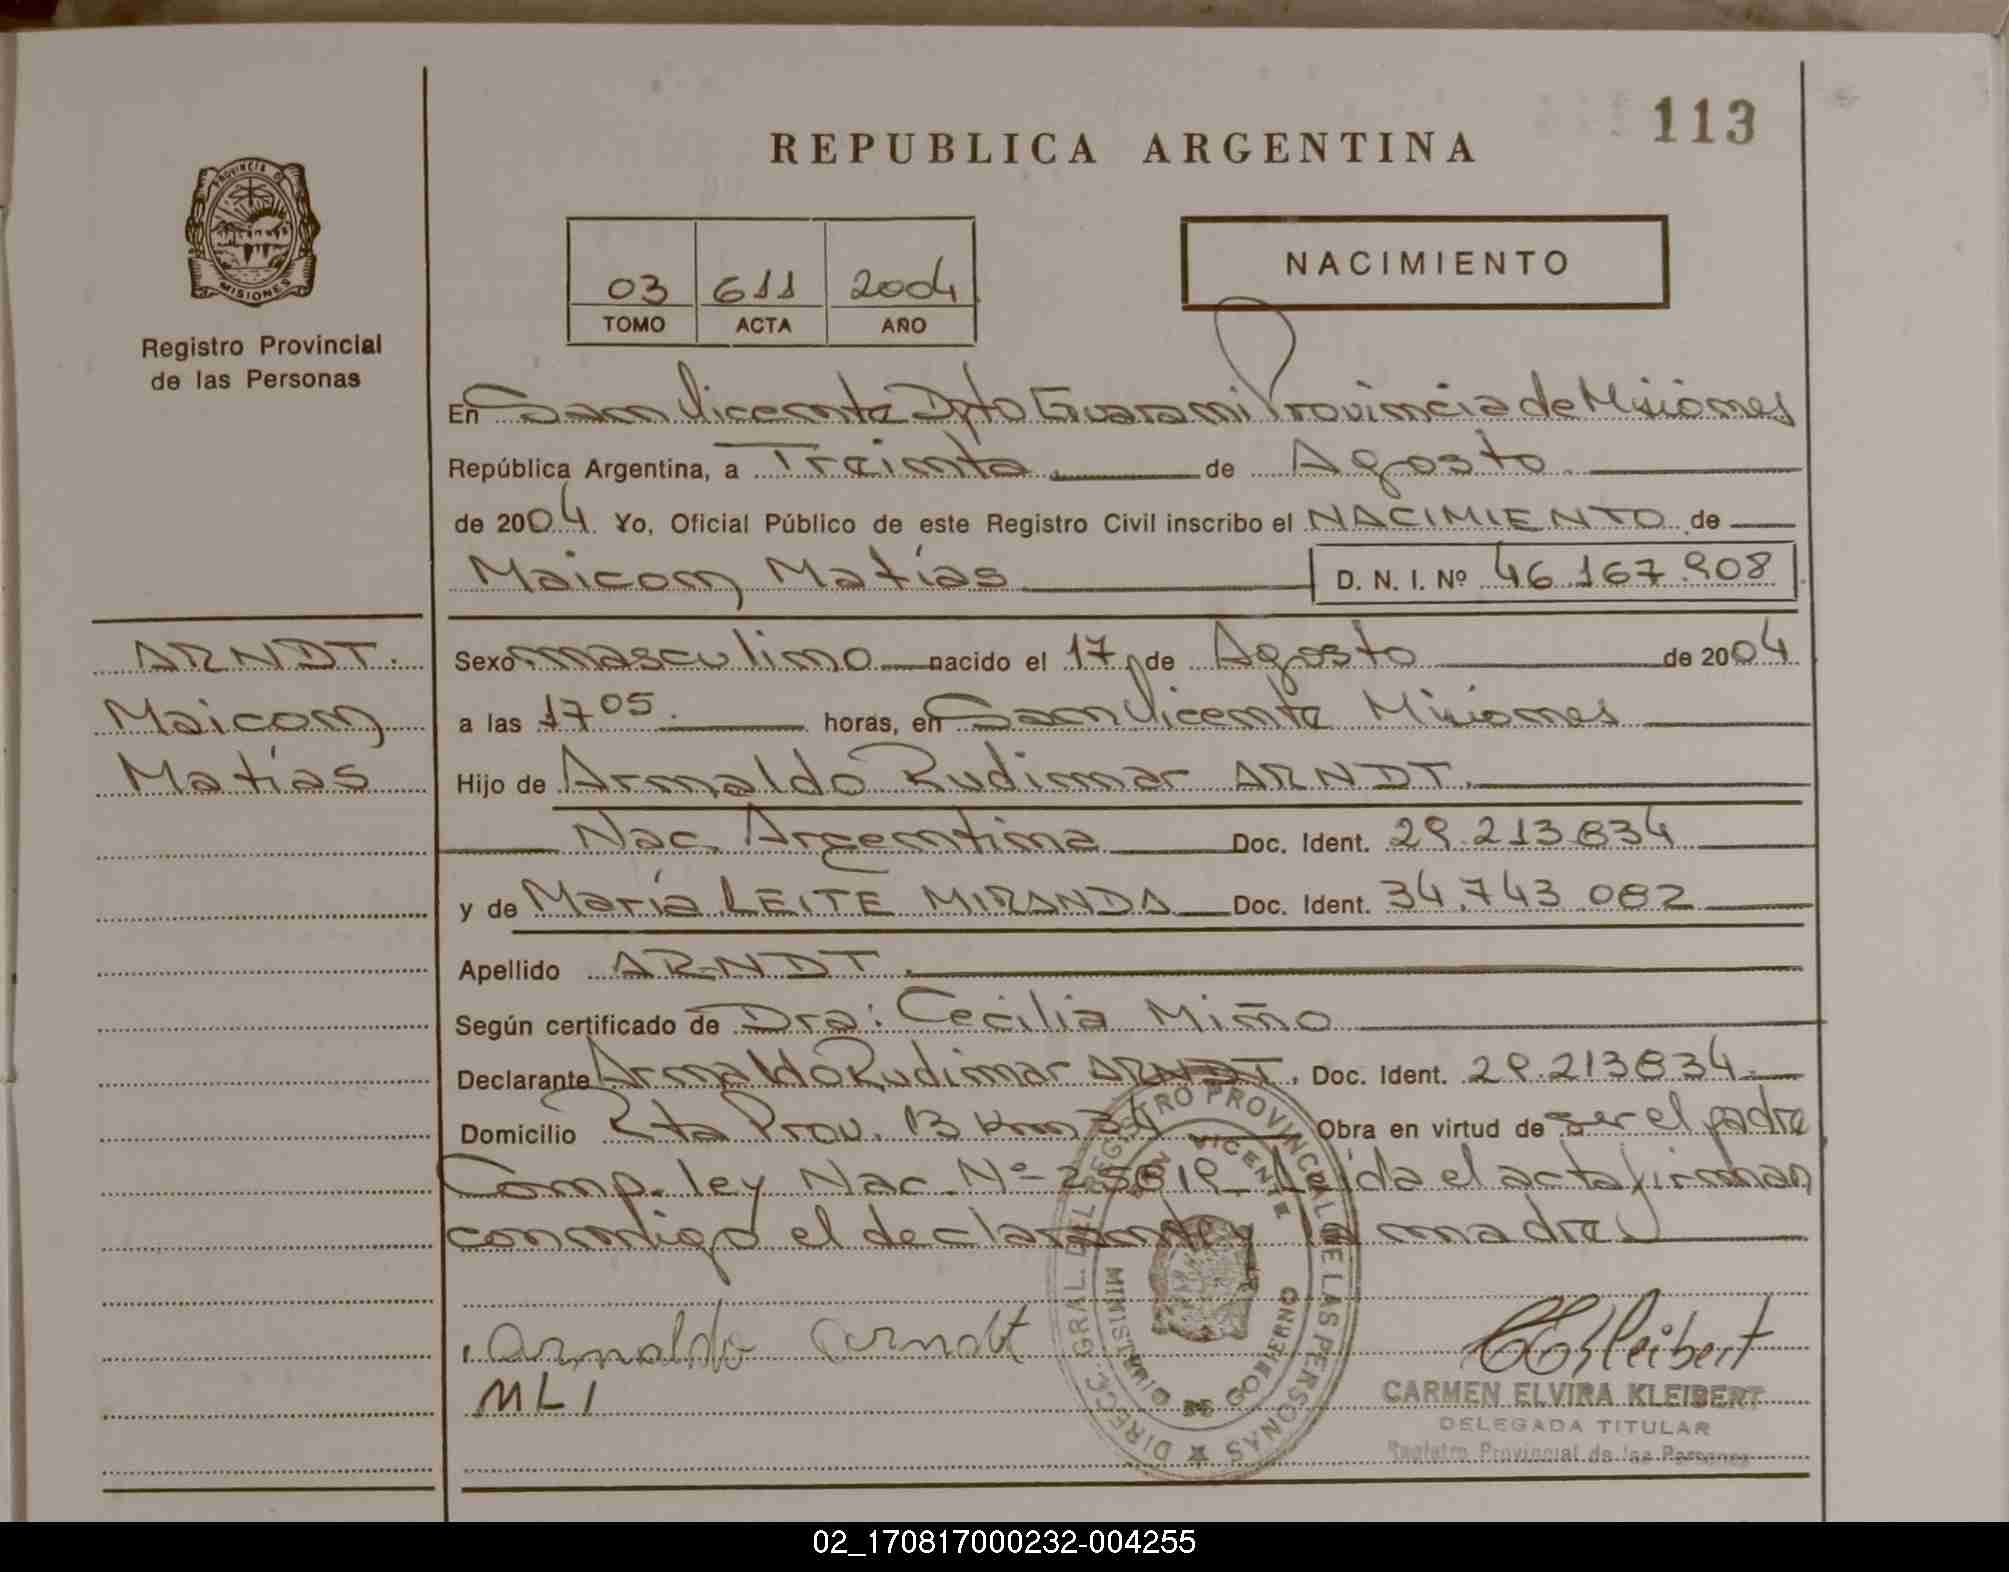 113
REPUBLICA ARGENTINA
PROVINCIA DE
MISIONES
Registro Provincial
de las Personas
03 611 2004
TOMO ACTA AÑO
NACIMIENTO
En San Vicente Dpto Guarani Provincia de Misiones
República Argentina, a Treinta de Agosto
de 2004 Yo, Oficial Público de este Registro Civil inscribo el NACIMIENTO de
Maicom Matías D. N. I. Nº 46.167.908
ARNDT.
Maicom
Matías
Sexo masculino nacido el 17 de Agosto de 2004
a las 17 05 horas, en San Vicente Misiones
Hijo de Arnaldo Rudimar ARNDT.
Nac. Argentina Doc. Ident. 29.213.834
y de María LEITE MIRANDA Doc. Ident. 34.743.082
Apellido ARNDT.
Según certificado de Dra: Cecilia Miño
Declarante Arnaldo Rudimar ARNDT. Doc. Ident. 29.213834
Domicilio Rta Prov. 13 Km 34 Obra en virtud de ser el padre
Comp. ley Nac. Nº 25819 Leida el acta firman
conmigo el declarante y la madre
Arnaldo Arndt
MLI
DIRECC. GRAL. DEL REGISTRO PROVINCIAL DE LAS PERSONAS
SAN VICENTE
MINISTERIO DE GOBIERNO
CEKleibert
CARMEN ELVIRA KLEIBERT
DELEGADA TITULAR
Registro Provincial de las Personas
02_170817000232-004255